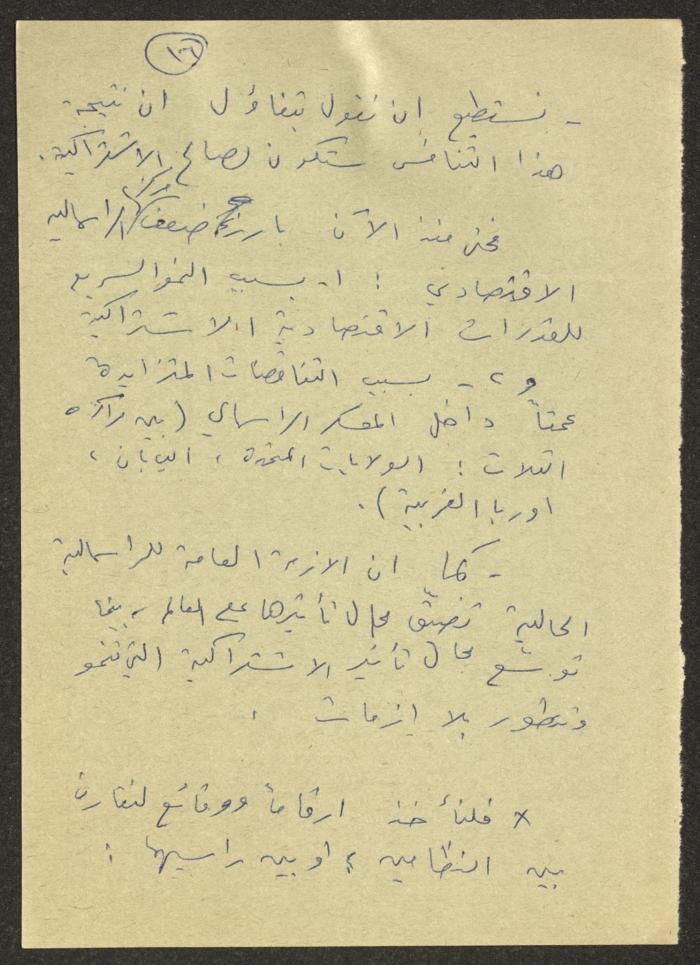 ١٠٦
- نستطيع ان نقول بتفاؤل ان نتيجة
هذا التنافس ستكون لصالح الاشتراكية.
فمنذ الآن بارز ضعف مركز الراسمالية
الاقتصادي : ١- بسبب النمو السريع
للقدرات الاقتصادية الاشتراكية
و ٢- بسبب التناقضات المتزايدة
عمقاً داخل المعسكر الراسمالي (بين مراكزه
الثلاث : الولايات المتحدة ، اليابان ،
اوربا الغربية).
- كما ان الازمة العامة للراسمالية
الحالية تضيّق مجال تأثيرها على العالم ، بينما
توسّع مجال تأثير الاشتراكية التي تنمو
وتتطور بلا ازمات .
× فلنأخذ ارقاماً ووقائع لنقارن
بين النظامين ، او بين راسيهما :